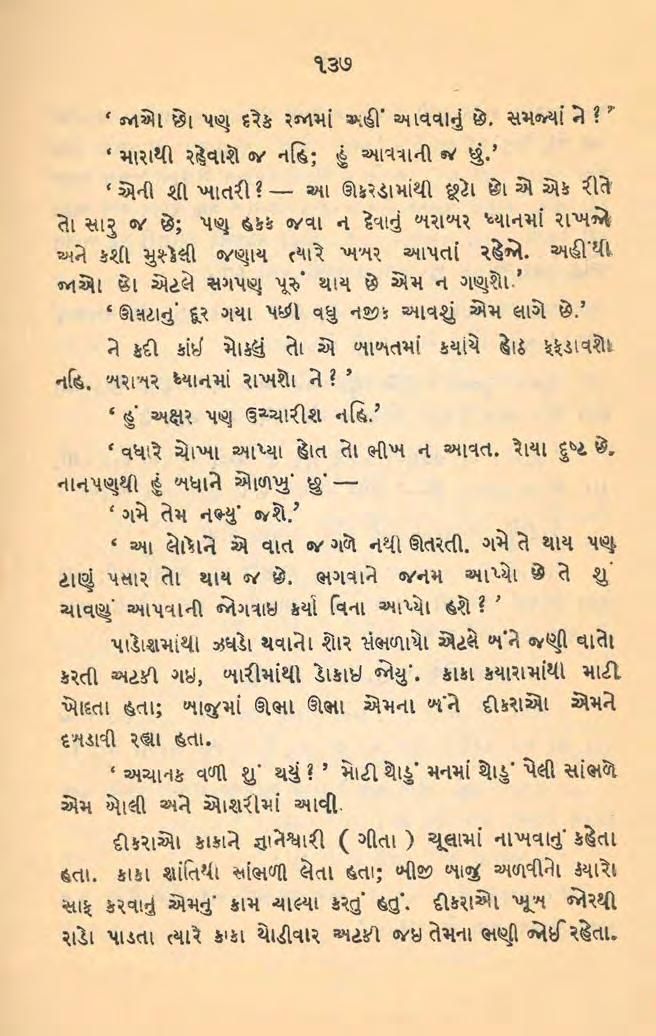 ૧૩૭
‘ જાઓ છો પણ દરેક રજામાં અહીં આવવાનું છે. સમજ્યાં ને ? ’
‘ મારાથી રહેવાશે જ નહિ; હું આવવાની જ છું.’
‘ એની શી ખાતરી ? — આ ઊકરડામાંથી છૂટો છો એ એક રીતે
તો સારુ જ છે; પણ હકક જવા ન દેવાનું બરાબર ધ્યાનમાં રાખજો
અને કશી મુશ્કેલી જણાય ત્યારે ખબર આપતાં રહેજો. અહીંથી
જાઓ છો એટલે સગપણ પૂરું થાય છે એમ ન ગણશો.’
‘ ઊલટાનું દૂર ગયા પછી વધુ નજીક આવશું એમ લાગે છે.’
ને કદી કાંઈ મોકલું તો એ બાબતમાં કયાંયે હોઠ ફફડાવશો
નહિ. બરાબર ધ્યાનમાં રાખશો ને ? ’
‘ હું અક્ષર પણ ઉચ્ચારીશ નહિ.’
‘ વધારે ચોખા આપ્યા હોત તો ભીખ ન આવત. રોયા દુષ્ટ છે.
નાનપણથી હું બધાને ઓળખું છું —
‘ ગમે તેમ નભ્યું જશે.’
‘ આ લોકોને એ વાત જ ગળે નથી ઊતરતી. ગમે તે થાય પણ
ટાણું પસાર તો થાય જ છે. ભગવાને જનમ આપ્યો છે તે શું
ચાવણું આપવાની જોગવાઇ કર્યા વિના આપ્યો હશે ? ’
પાડોશમાંથી ઝઘડો થવાનો શોર સંભળાયો એટલે બંને જણી વાતો
કરતી અટકી ગઇ, બારીમાંથી ડોકાઇ જોયું. કાકા કયારામાંથી માટી
ખોદતા હતા; બાજુમાં ઊભા ઊભા એમના બંને દીકરાઓ એમને
દબડાવી રહ્યા હતા.
‘ અચાનક વળી શું થયું ? ’ મોટી થોડું મનમાં થોડું પેલી સાંભળે
એમ બોલી અને ઓશરીમાં આવી.
દીકરાઓ કાકાને જ્ઞાનેશ્વારી ( ગીતા ) ચૂલામાં નાખવાનું કહેતા
હતા. કાકા શાંતિથી સાંભળી લેતા હતા; બીજી બાજુ અળવીનો કયારો
સાફ કરવાનું એમનું કામ ચાલ્યા કરતું હતું. દીકરાઓ ખૂબ જોરથી
રાડો પાડતા ત્યારે કાકા થોડીવાર અટકી જઇ તેમના ભણી જોઈ રહેતા.